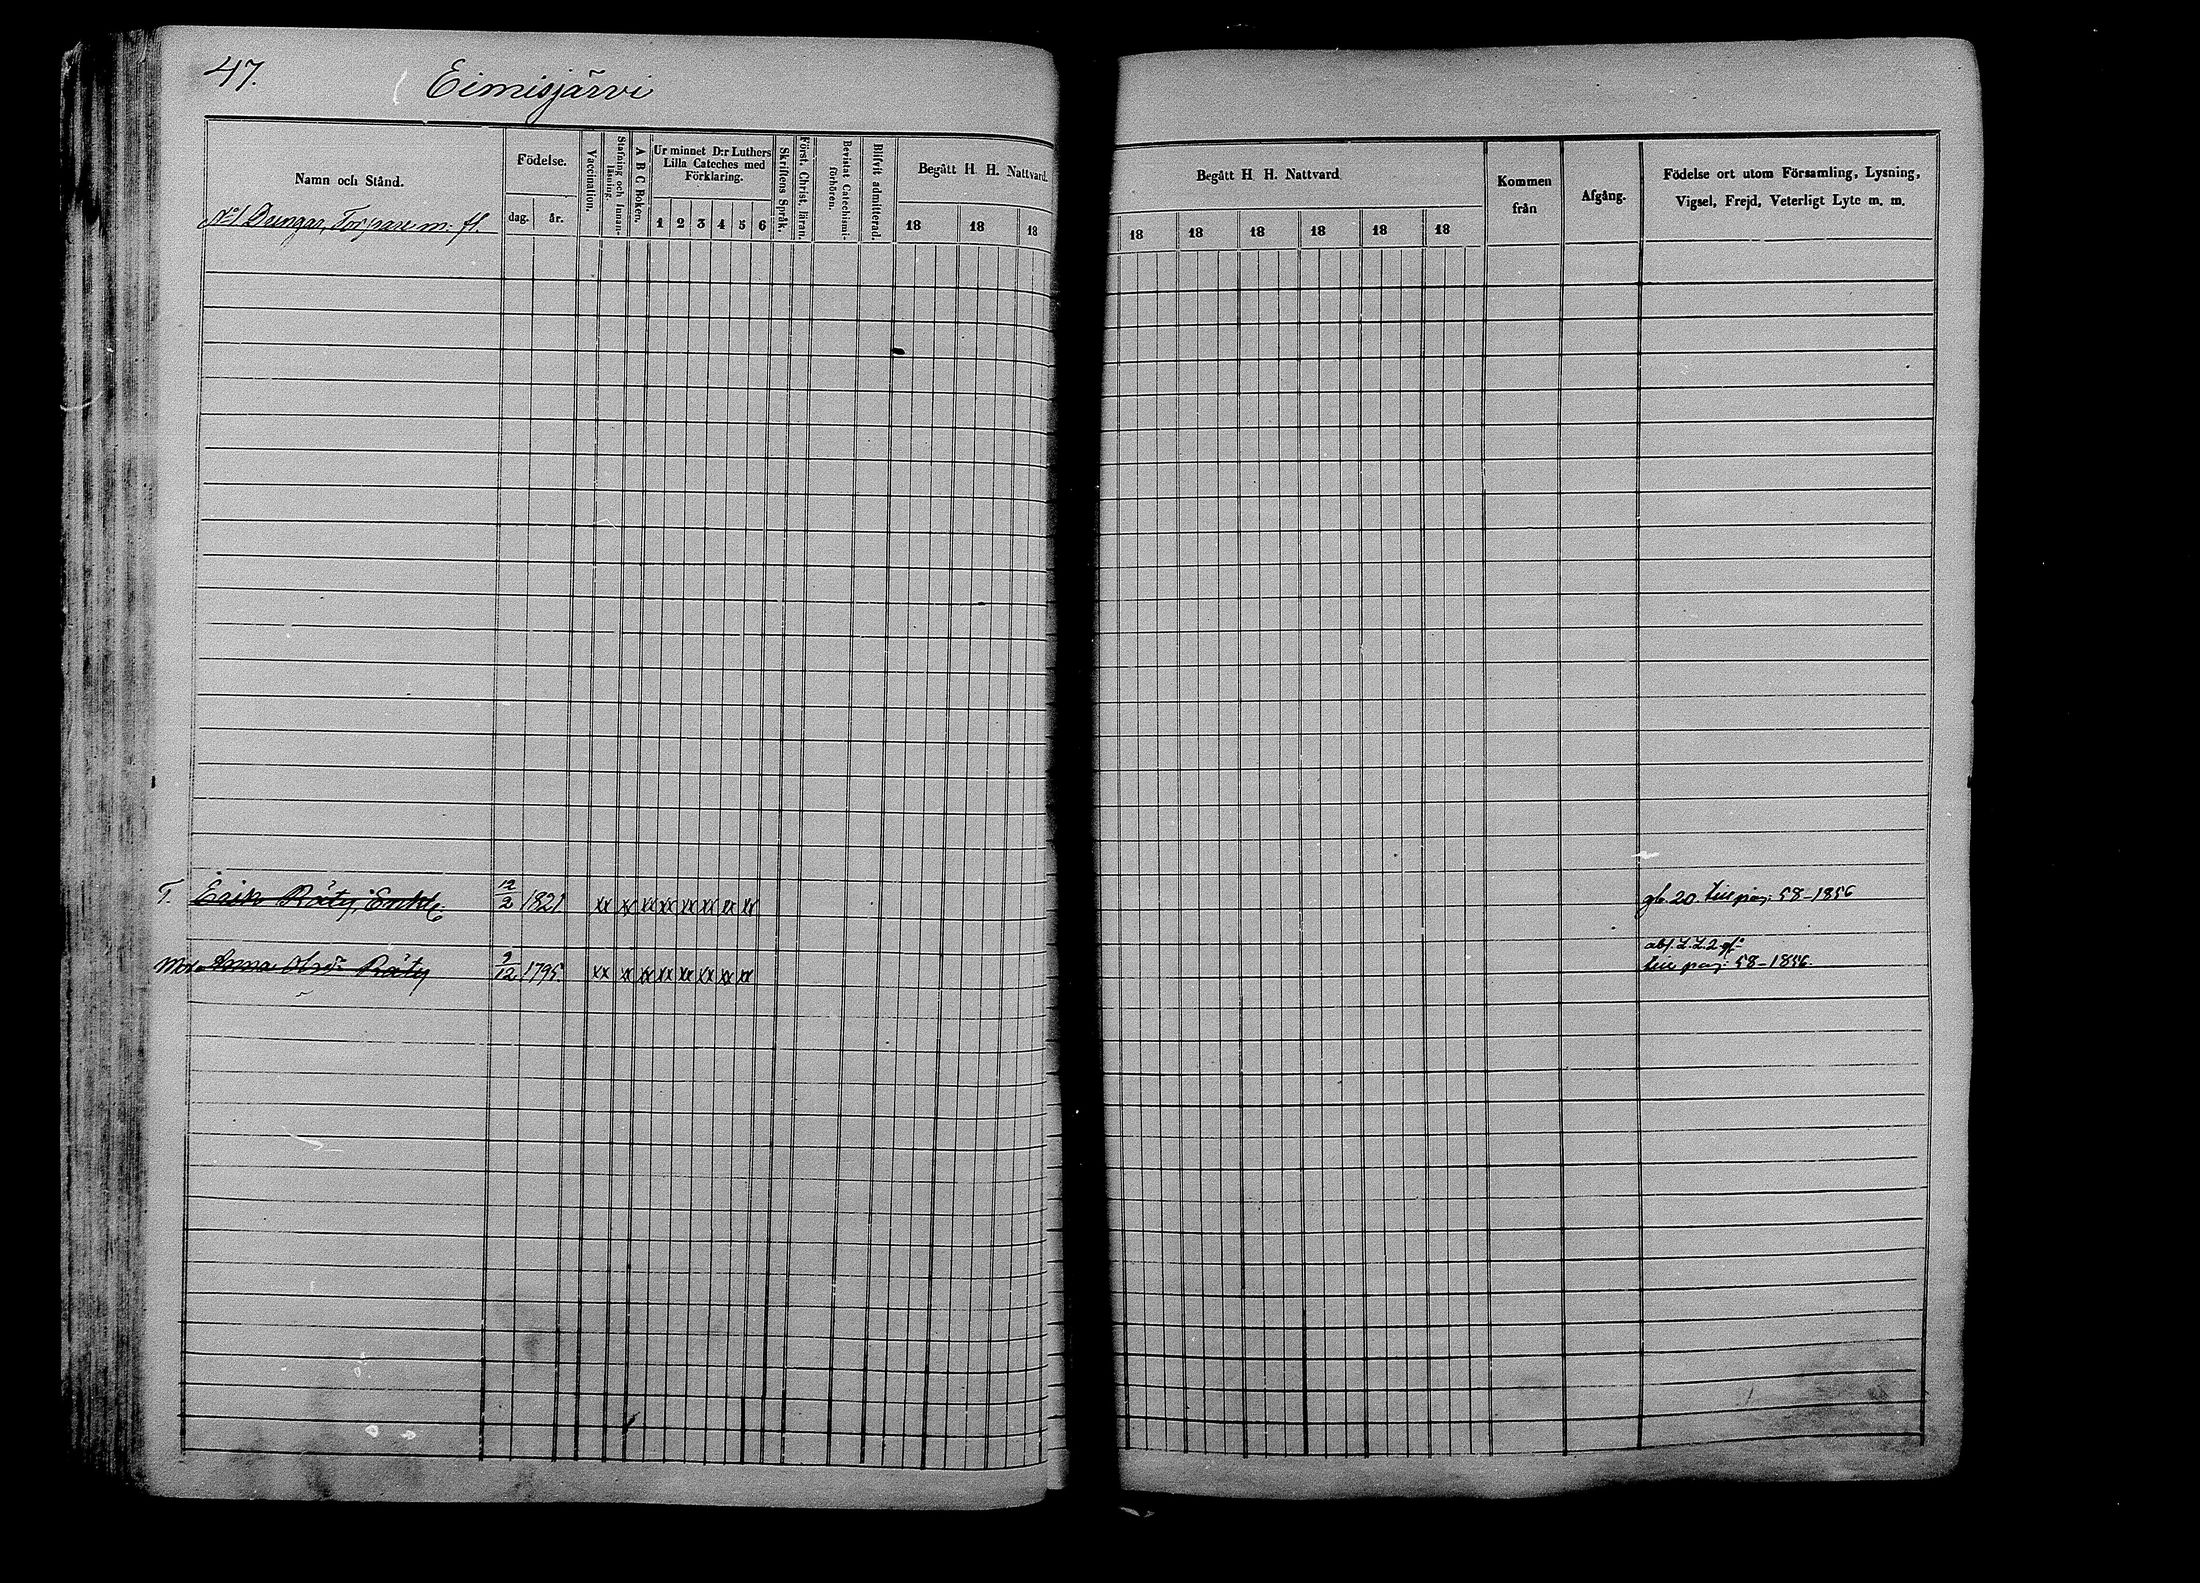 47.
Eimisjärvi
Namn och Stånd.
Födelse.
dag. år.
Vaccination.
Stafning och Innan-
läsning
A B C Boken.
Ur minnet D:r Luthers
Lilla Cateches med
Förklaring.
1 2 3 4 5 6
Skriftens Språk.
Först. Christ. läran.
Bevistat Catechismi-
förhören.
Blifvit admitterad.
Begått H H. Nattvard.
18 18 18
Begått H H. Nattvard
18 18 18 18 18 18
Kommen
från
Afgång.
Födelse ort utom Församling, Lysning,
Vigsel, Frejd, Veterligt Lyte m. m.
No 1 Torpare m. fl.
T. Erik Räty, Enkl. 12/2 1821 xx xx xx xx xx xx xx xx 20. pag: 58-1856
Anna Räty 9/12 1795. xx xx xx xx xx xx xx xx
pag: 58-1856.